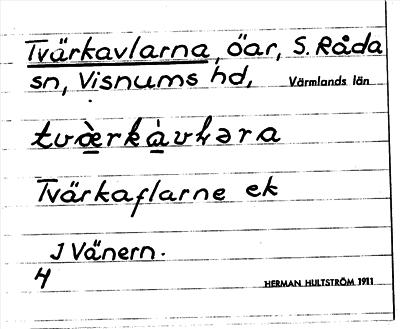 Tvärkavlarna, öar, S. Råda
sn, Visnums hd, Värmlands län
Tvärkaflarne ek
I Vänern.
4
HERMAN HULTSTRÖM 1911